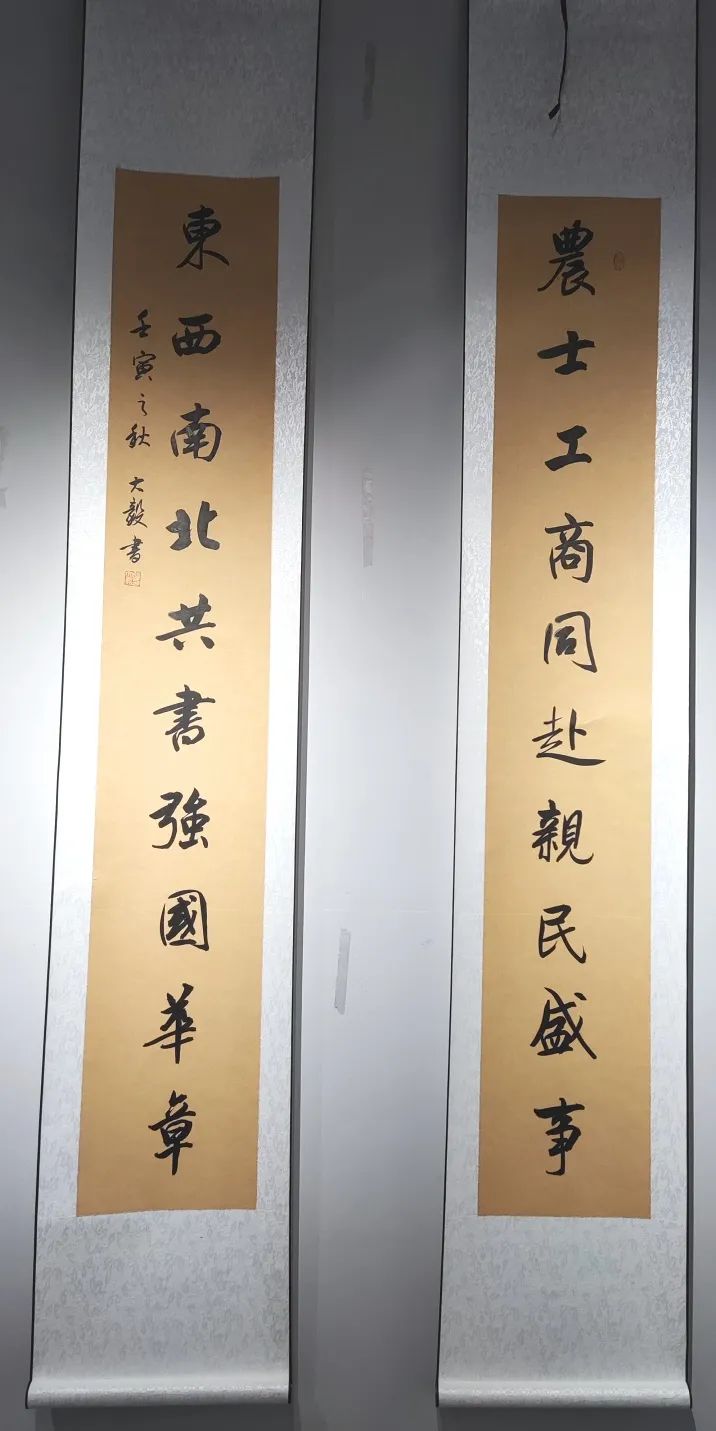 農士工商同赴親民盛事
東西南北共書強國華章
壬寅之秋 大毅書